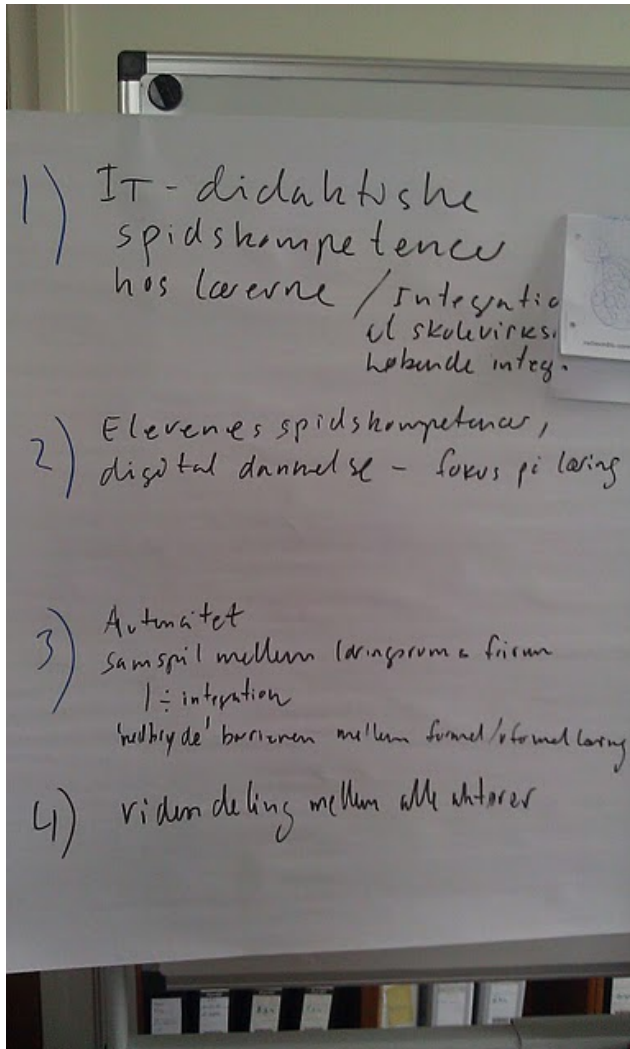 1) IT-didaktiske
spidskompetencer
hos lærerne / Integratio
af skolevirks.
løbende integ.
2) Elevenes spidskompetencer,
digital dannelse - fokus på læring
3) Autencitet
samspil mellem læringsrum & frirum
/ ÷ integration
'nedbryde' barrieren mellem formel/uformel læring
4) videndeling mellem alle aktører